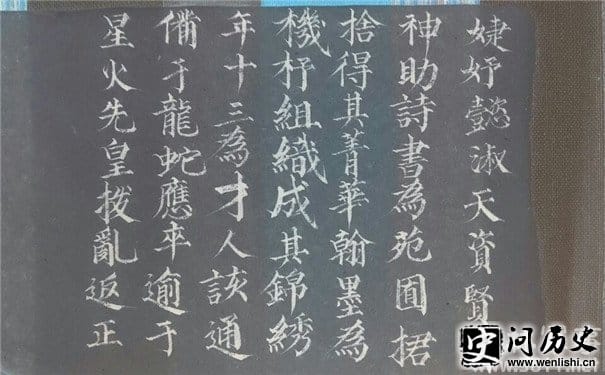 婕妤懿淑天資賢
神助詩書為苑囿捃
捨得其菁華翰墨為
機杼組織成其錦綉
年十三為才人該通
俻于龍蛇應卒逾于
星火先皇撥亂返正
问历史
www.wenlishi.com